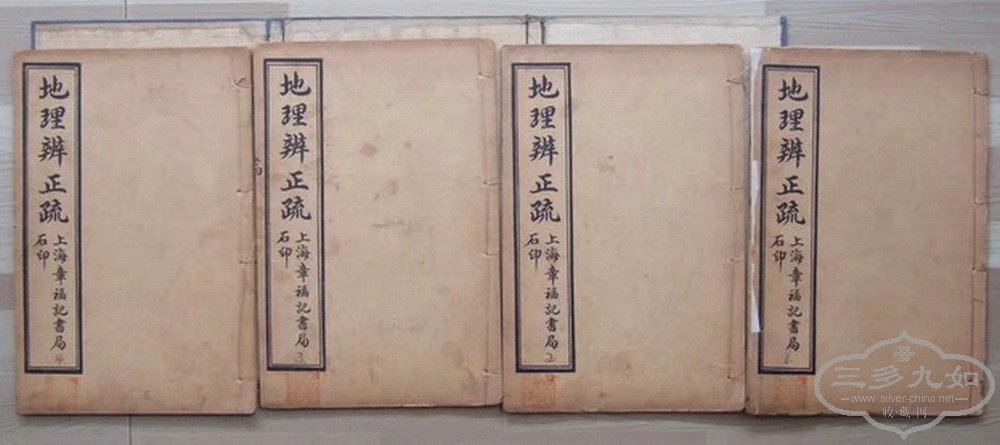 地理辨正疏
上海章福記書局
石印
4
地理辨正疏
上海章福記書局
石印
3
地理辨正疏
上海章福記書局
石印
2
地理辨正疏
上海章福記書局
石印
三多九如
www.silver-china.net
收·藏·网